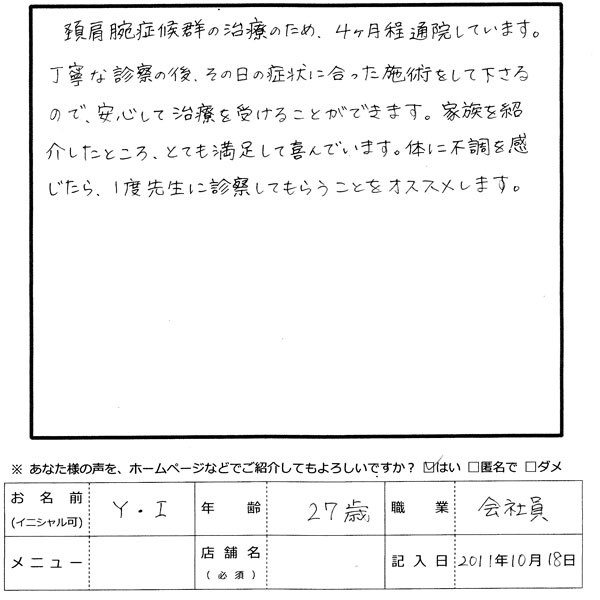 頚肩腕症候群の治療のため、4ヶ月程通院しています。
丁寧な診察の後、その日の症状に合った施術をして下さる
ので、安心して治療を受けることができます。家族を紹
介したところ、とても満足して喜んでいます。体に不調を感
じたら、1度先生に診察してもらうことをオススメします。
※ あなた様の声を、ホームページなどでご紹介してもよろしいですか？ ☑はい □匿名で □ダメ
お名前 (イニシャル可) Y・I 年齢 27歳 職業 会社員
メニュー 店舗名 (必須) 記入日 2011年10月18日